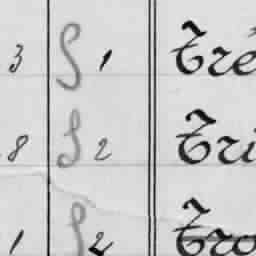 3 S 1 Tré
8 S 2 Tri
1 S 2 Tro